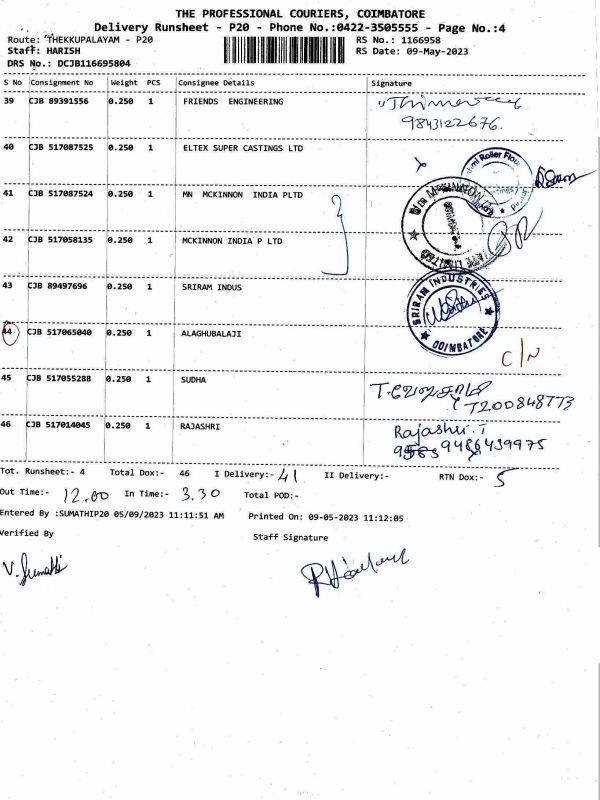 THE PROFESSIONAL COURIERS, COIMBATORE
Delivery Runsheet - P20 - Phone No.:0422-3505555 - Page No.:4
Route: THEKKUPALAYAM - P20 RS No.: 1166958
Staff: HARISH RS Date: 09-May-2023
DRS No.: DCJB116695804
S No Consignment No Weight PCS Consignee Details Signature
39 CJB 89391556 0.250 1 FRIENDS ENGINEERING
9843122676.
40 CJB 517087525 0.250 1 ELTEX SUPER CASTINGS LTD
Roller Flour
41 CJB 517087524 0.250 1 MN MCKINNON INDIA PLTD
42 CJB 517058135 0.250 1 MCKINNON INDIA P LTD
43 CJB 89497696 0.250 1 SRIRAM INDUS
SRIRAM INDUSTRIES
COIMBATORE
44 CJB 517065040 0.250 1 ALAGHUBALAJI
C/N
45 CJB 517055288 0.250 1 SUDHA
7200848773
46 CJB 517014045 0.250 1 RAJASHRI
Rajashri.T
9486439975
Tot. Runsheet:- 4 Total Dox:- 46 I Delivery:- 41 II Delivery:- RTN Dox:- 5
Out Time:- 12.00 In Time:- 3.30 Total POD:-
Entered By :SUMATHIP20 05/09/2023 11:11:51 AM Printed On: 09-05-2023 11:12:05
Verified By Staff Signature
V. Sumathi